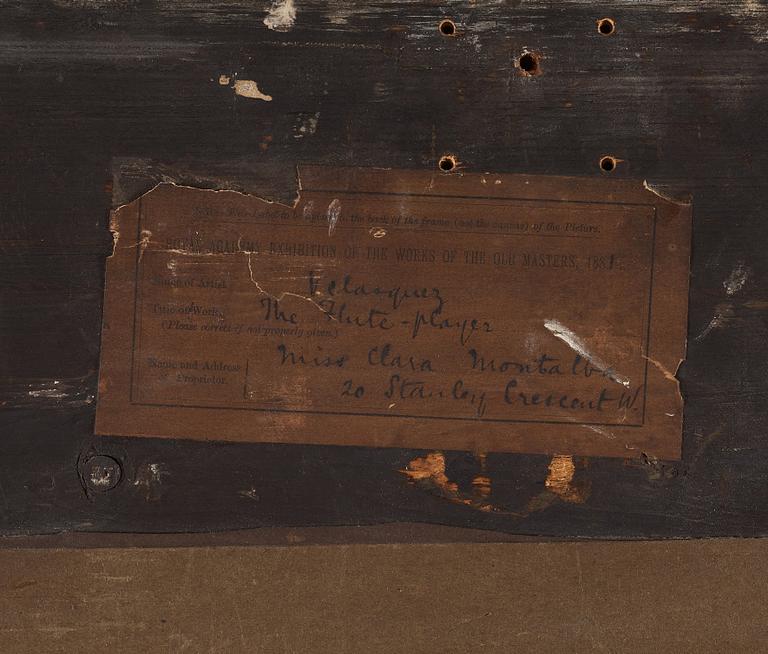 Note.—This Label to be affixed to the back of the frame (not the canvas) of the Picture.
ROYAL ACADEMY EXHIBITION OF THE WORKS OF THE OLD MASTERS, 188
Name of Artist Velasquez
Title of Work, The Flute-player
(Please correct if not properly given.)
Name and Address Miss Clara Montalba
of Proprietor. 20 Stanley Crescent W.